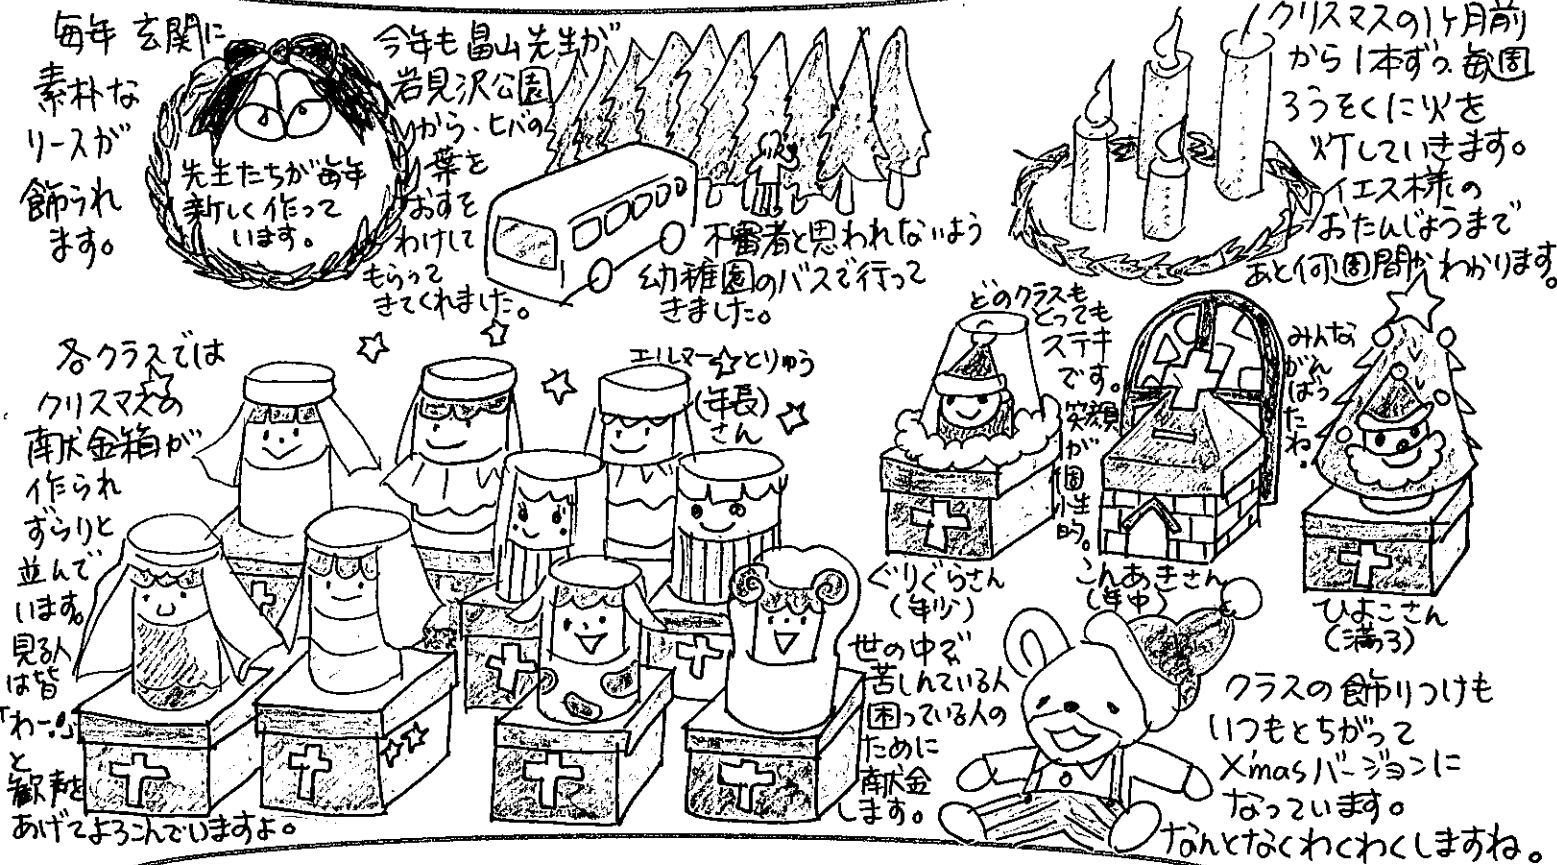 毎年 玄関に
素朴な
リースが
飾られ
ます。
先生たちが毎年
新しく作って
います。
今年も畠山先生が
岩見沢公園
から、ヒバの
葉を
おすそ
わけして
もらって
きてくれました。
不審者と思われないよう
幼稚園のバスで行って
きました。
クリスマスの1ヶ月前
から1本ずつ、毎週
ろうそくに火を
灯していきます。
イエス様の
おたんじょうまで
あと何週間かわかります。
各クラスでは
クリスマスの
献金箱が
作られ
ずらりと
並んで
います。
見る人
は皆
「わー!」
と
歓声を
あげてよろこんでいますよ。
エルマー☆とりゅう
(年長)
さん
どのクラスも
とっても
ステキ
です。
笑顔
が
個
性
的。
ぐりぐらさん
(年少)
こんあきさん
(年中)
みんな
がん
ばっ
たね。
ひよこさん
(満3)
世の中で
苦しんでいる人
困っている人の
ために
献金
します。
クラスの飾りつけも
いつもとちがって
X'masバージョンに
なっています。
なんとなくわくわくしますね。